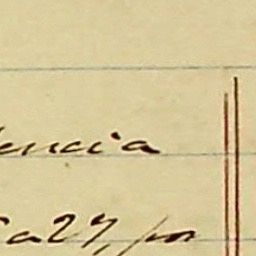 encia
a 27, por